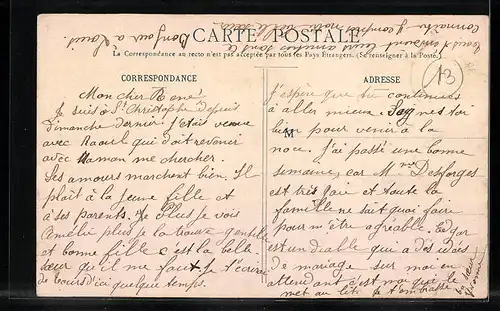 connaître, y compris notre belle sœur
tous t'envoient leurs amitiés sans te
Bonjour à Louis.
CARTE POSTALE
La Correspondance au recto n'est pas acceptée par tous les Pays Etrangers. (Se renseigner à la Poste.)
CORRESPONDANCE
Mon cher René
Je suis à St Christophe depuis
Dimanche dernier. J'étais venue
avec Raoul qui doit revenir
avec Maman me chercher.
Les amours marchent bien. Il
plaît à la jeune fille et
à ses parents. Plus je vois
Amélie plus je la trouve gentille
et bonne fille c'est la belle-
sœur qu'il me faut. Je t'écrirai
de Tours d'ici quelque temps.
ADRESSE
13
J'espère que tu continues
à aller mieux. Soignes toi
bien pour venir à la
noce. J'ai passé une bonne
semaine, car M. Desforges
est très gai et toute la
famille ne sait quoi faire
pour m'être agréable. Edgar
est un diable qui a des idées
de mariage sur moi en
attendant c'est moi qui le
met au lit. Je t'embrasse
ta sœur
Yvonne